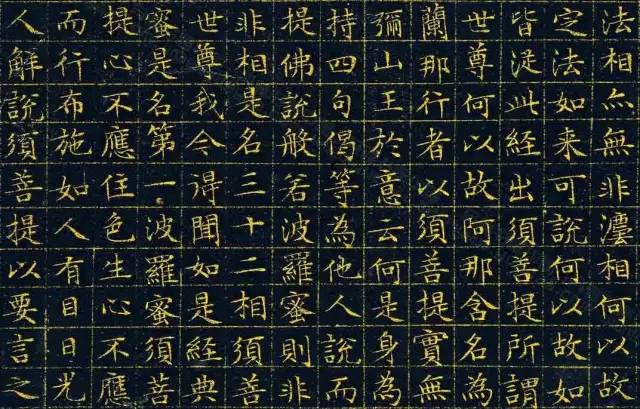 法相亦無非灋相何以故
定法如來可說何以故如
皆從此經出須菩提所謂
世尊何以故阿那含名為
蘭那行者以須菩提實無
彌山王於意云何是身為
持四句偈等為他人說而
提佛說般若波羅蜜則非
非相是名三十二相須菩
世尊我今得聞如是經典
蜜是名第一波羅蜜須菩
提心不應住色生心不應
而行布施如人有目日光
人解說須菩提以要言之